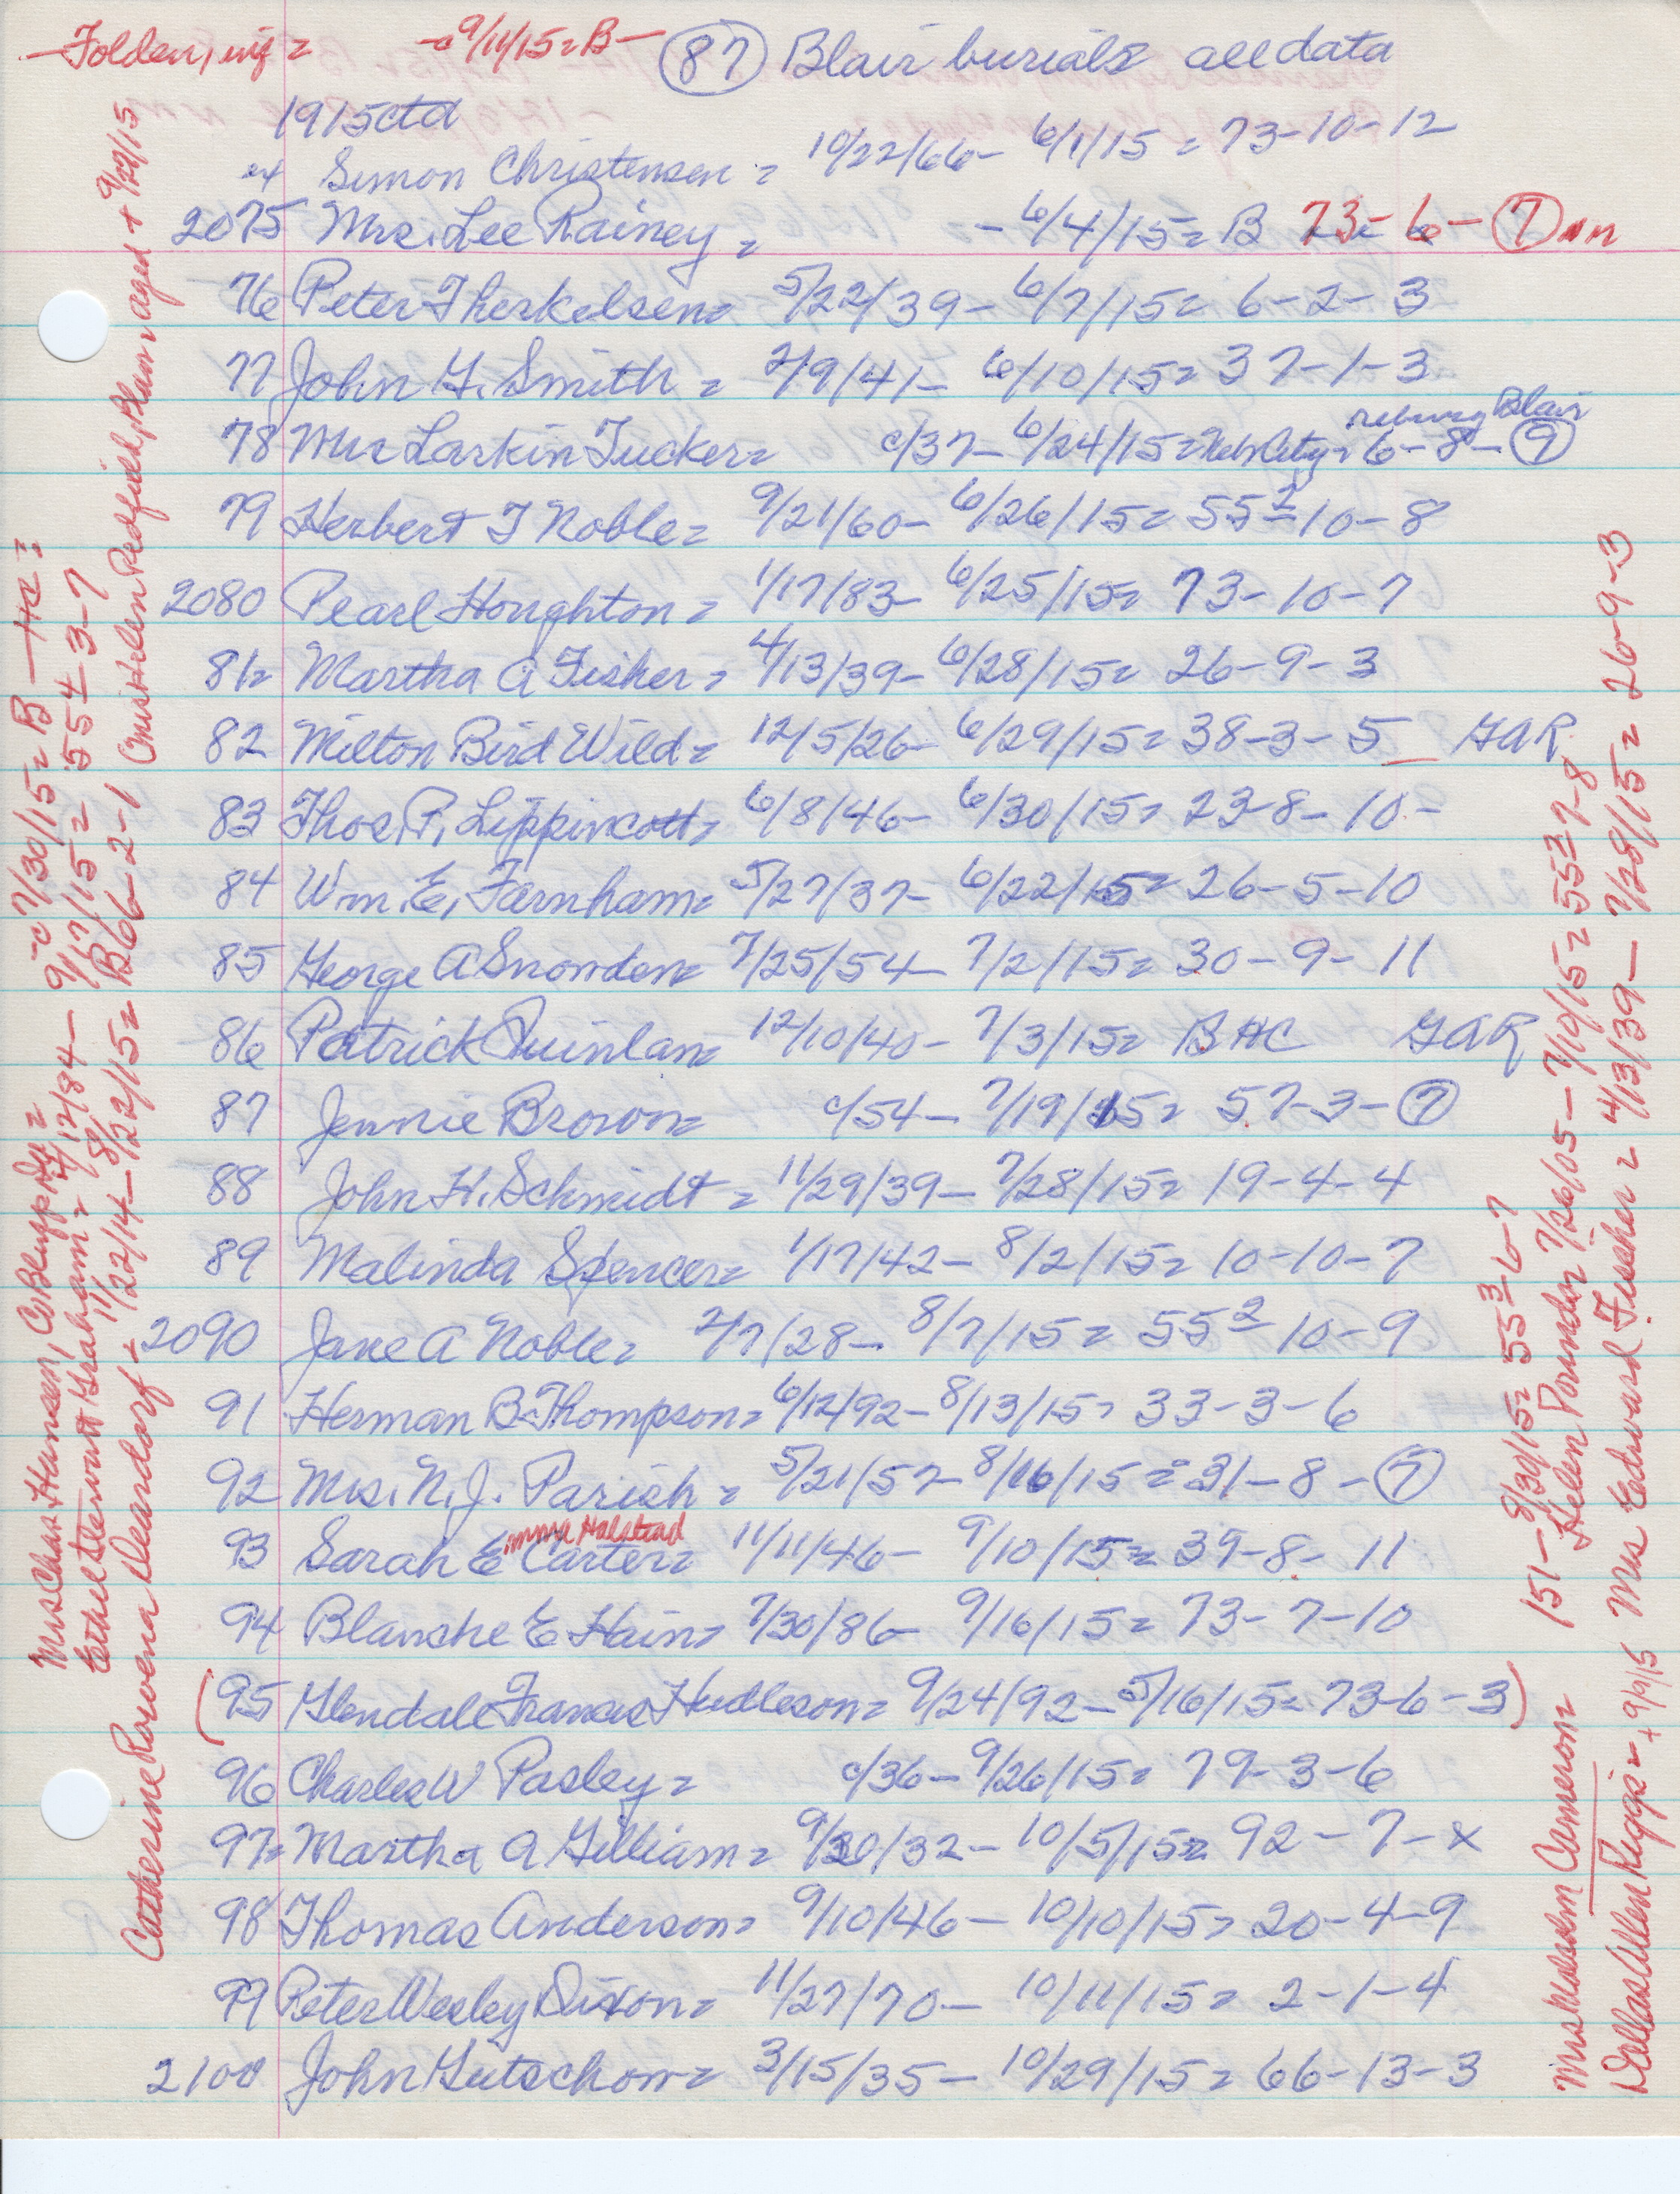 —Folden, inf = —9/11/15= B—
87 Blair burials all data
1915ctd
Simon Christensen = 10/22/66— 6/1/15 = 73-10-12
2075 Mrs. Lee Rainey = — 6/4/15= B 73- 6- 7
76 Peter Therkelsen= 5/22/39— 6/7/15= 6-2-3
77 John G. Smith = 2/9/41— 6/10/15= 37-1-3
reburg Blair
78 Mrs Larkin Tucker= c/37— 6/24/15=Neb City= 6-8- 9
79 Herbert T Noble= 9/21/60— 6/26/15= 55 2 10-8
2080 Pearl Houghton= 1/17/83— 6/25/15= 73-10-7
81= Martha A Fisher= 4/13/39— 6/28/15= 26-9-3
82 Milton Bird Wild= 12/5/26— 6/29/15= 38-3-5 GAR
83 Thos. P. Lippincott= 6/8/46— 6/30/15= 23-8-10-
84 Wm. E. Farnham= 5/27/37— 6/22/15= 26-5-10
85 George A Snowden= 7/25/54— 7/2/15= 30-9-11
86 Patrick Quinlan= 12/10/40— 7/3/15= BHC GAR
87 Jennie Brown= c/54— 7/19/15= 57-3- 7
88 John H. Schmidt = 11/29/39— 7/28/15= 19-4-4
89 Malinda Spencer= 1/17/42— 8/2/15= 10-10-7
2090 Jane A Noble= 2/7/28— 8/7/15= 55 2 10-9
91 Herman B. Thompson= 6/12/92— 8/13/15= 33-3-6
92 Mrs. N. J. Parish = 5/21/57— 8/16/15= 31-8- 7
93 Sarah Emma Halstead Carter= 11/11/46— 9/10/15= 39-8-11
94 Blanche E Hain= 7/30/86— 9/16/15= 73-7-10
(95 Glendale Francis Hudleson= 9/24/92— 5/16/15= 73-6-3)
96 Charles W Pasley= c/36— 9/26/15= 79-3-6
97= Martha A Gilliam= 9/30/32— 10/5/15= 92-7-x
98 Thomas Anderson= 9/10/46— 10/10/15= 20-4-9
99 Peter Wesley Dixon= 11/27/70— 10/11/15= 2-1-4
2100 John Gutschow= 3/15/35— 10/29/15= 66-13-3
Mrs Chas Hansen, —c 7/30/15= B —HC?
Ethel Stewart Graham= 4/12/84— 9/17/15= 55 4 3-7
Catherine Rowena Deardorf= 11/22/14— 8/22/15= B66-2-1 Redfield, Blair aged + 9/29/15
Mrs Malcolm Cameron= 151— 8/30/15= 55 3 6-7
Helen Poundor 7/26/05— 7/10/15= 55 3 7-8
Dallas Allen Riggs= + 9/9/15 Mrs Edward Fissher = 4/13/39— 7/28/15= 26-9-3